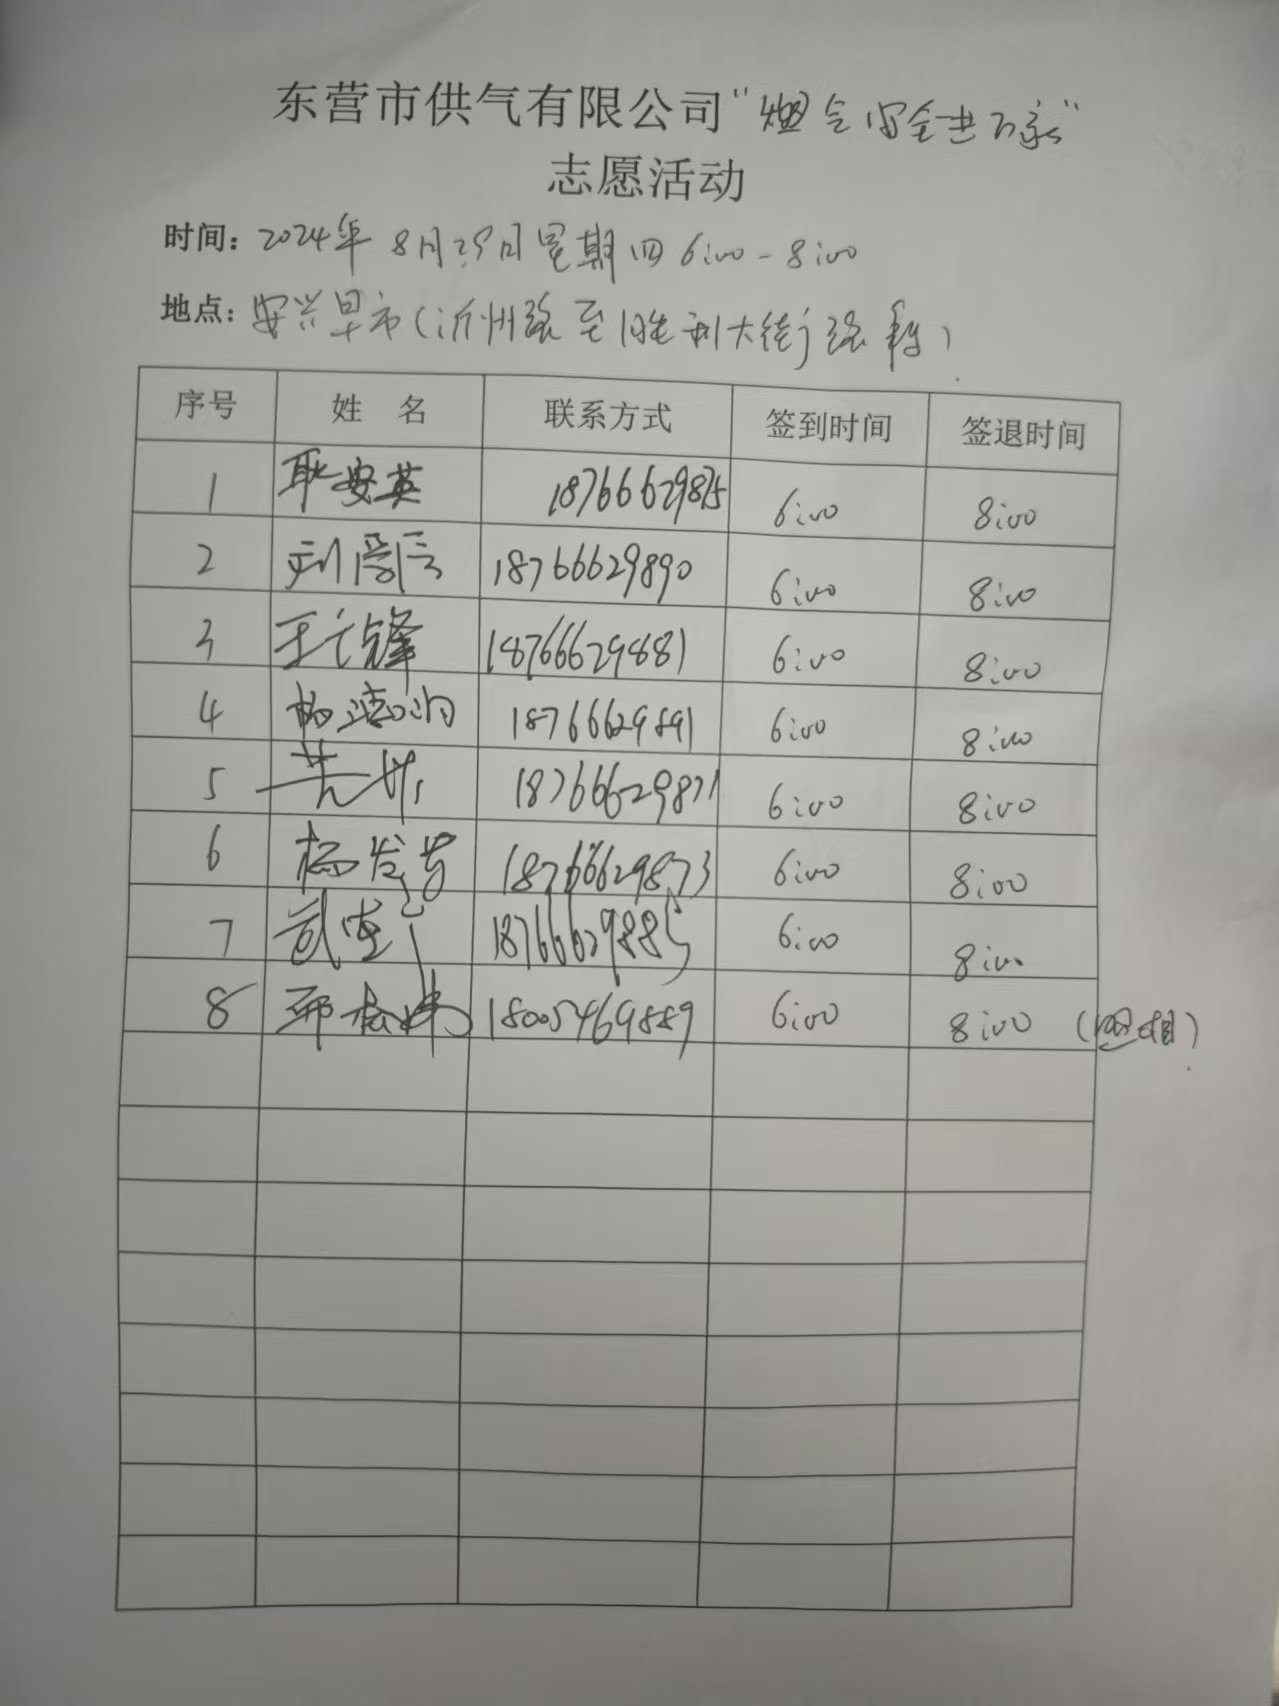 东营市供气有限公司"燃气安全进万家"
志愿活动
时间: 2024年 8月29日 星期四 6:00-8:00
地点: 安兴早市(沂州路至胜利大街路段)
序号 姓 名 联系方式 签到时间 签退时间
1 耿安英 18766629875 6:00 8:00
2 刘 18766629890 6:00 8:00
3 王锋 18766629881 6:00 8:00
4 杨 18766629891 6:00 8:00
5 18766629871 6:00 8:00
6 杨发芳 18766629873 6:00 8:00
7 武 18766629885 6:00 8:00
8 邢 18005469889 6:00 8:00 (照相)